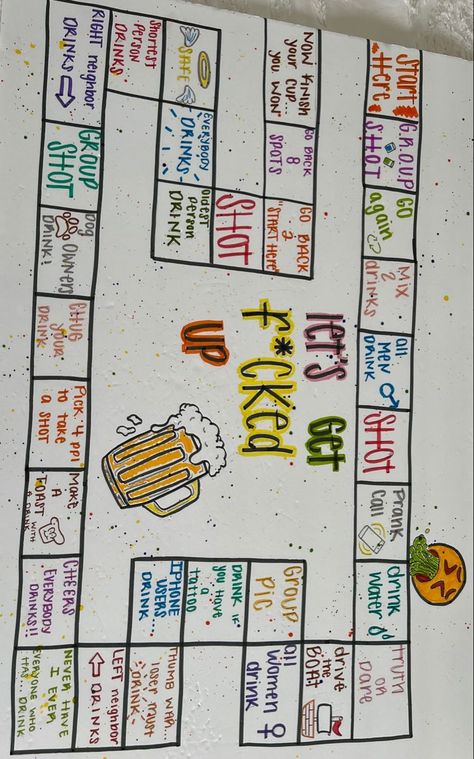 Start
Here
GROUP
SHOT
GO
again
MIX
2
drinks
all
MEN
DRINK
SHOT
Prank
Call
drink
water
truth
or
Dare
drive
the
BOAT
all
women
drink
Group
Pic
DRINK IF
you have
a
tattoo
IPHONE
USERS
DRINK..
THUMB WAR...
loser must
DRINK
LEFT neighbor
DRINKS
NEVER HAVE
I EVER
EVERYONE WHO
HAS... DRINK
CHEERS
EVERYBODY
DRINKS!!
Make
A
TOAST WITH
A DRINK
Pick 4 ppl
to take
a SHOT
CHUG
your
DRINK
Dog
OWNERS
DRINK!
GROUP
SHOT
RIGHT neighbor
DRINKS
shortest
person
DRINKS
SAFE
EVERYBODY
DRINKS
oldest
person
DRINK
SHOT
GO BACK
2
"START HERE"
GO BACK
8
SPOTS
NOW FINISH
your CUP..
you WON
LET'S GET
F*CKED
UP